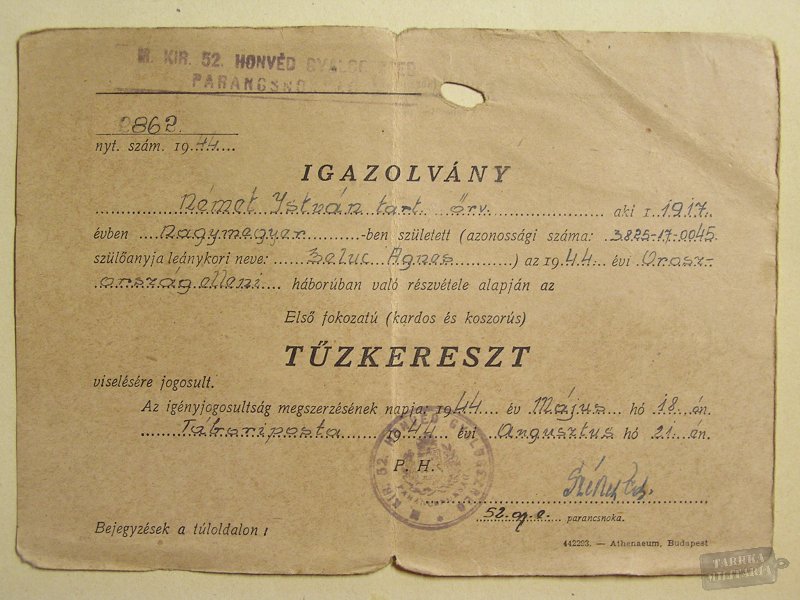 M. KIR. 52. HONVÉD
2862.
nyt. szám. 1944....
IGAZOLVÁNY
Német István tart. őrv. aki 1917.
évben Nagymegyer -ben született (azonossági száma: 3825-17-0045
szülőanyja leánykori neve: Beluc Ágnes ) az 1944 évi Orosz-
ország elleni háborúban való részvétele alapján az
Első fokozatú (kardos és koszorús)
TŰZKERESZT
viselésére jogosult.
Az igényjogosultság megszerzésének napja: 1944 év Május hó 18 én.
Táboriposta 1944 évi Augusztus hó 21 én.
P. H.
52. gy. e. parancsnoka.
Bejegyzések a túloldalon !
442293. — Athenaeum, Budapest
TABRKA
MILITARIA